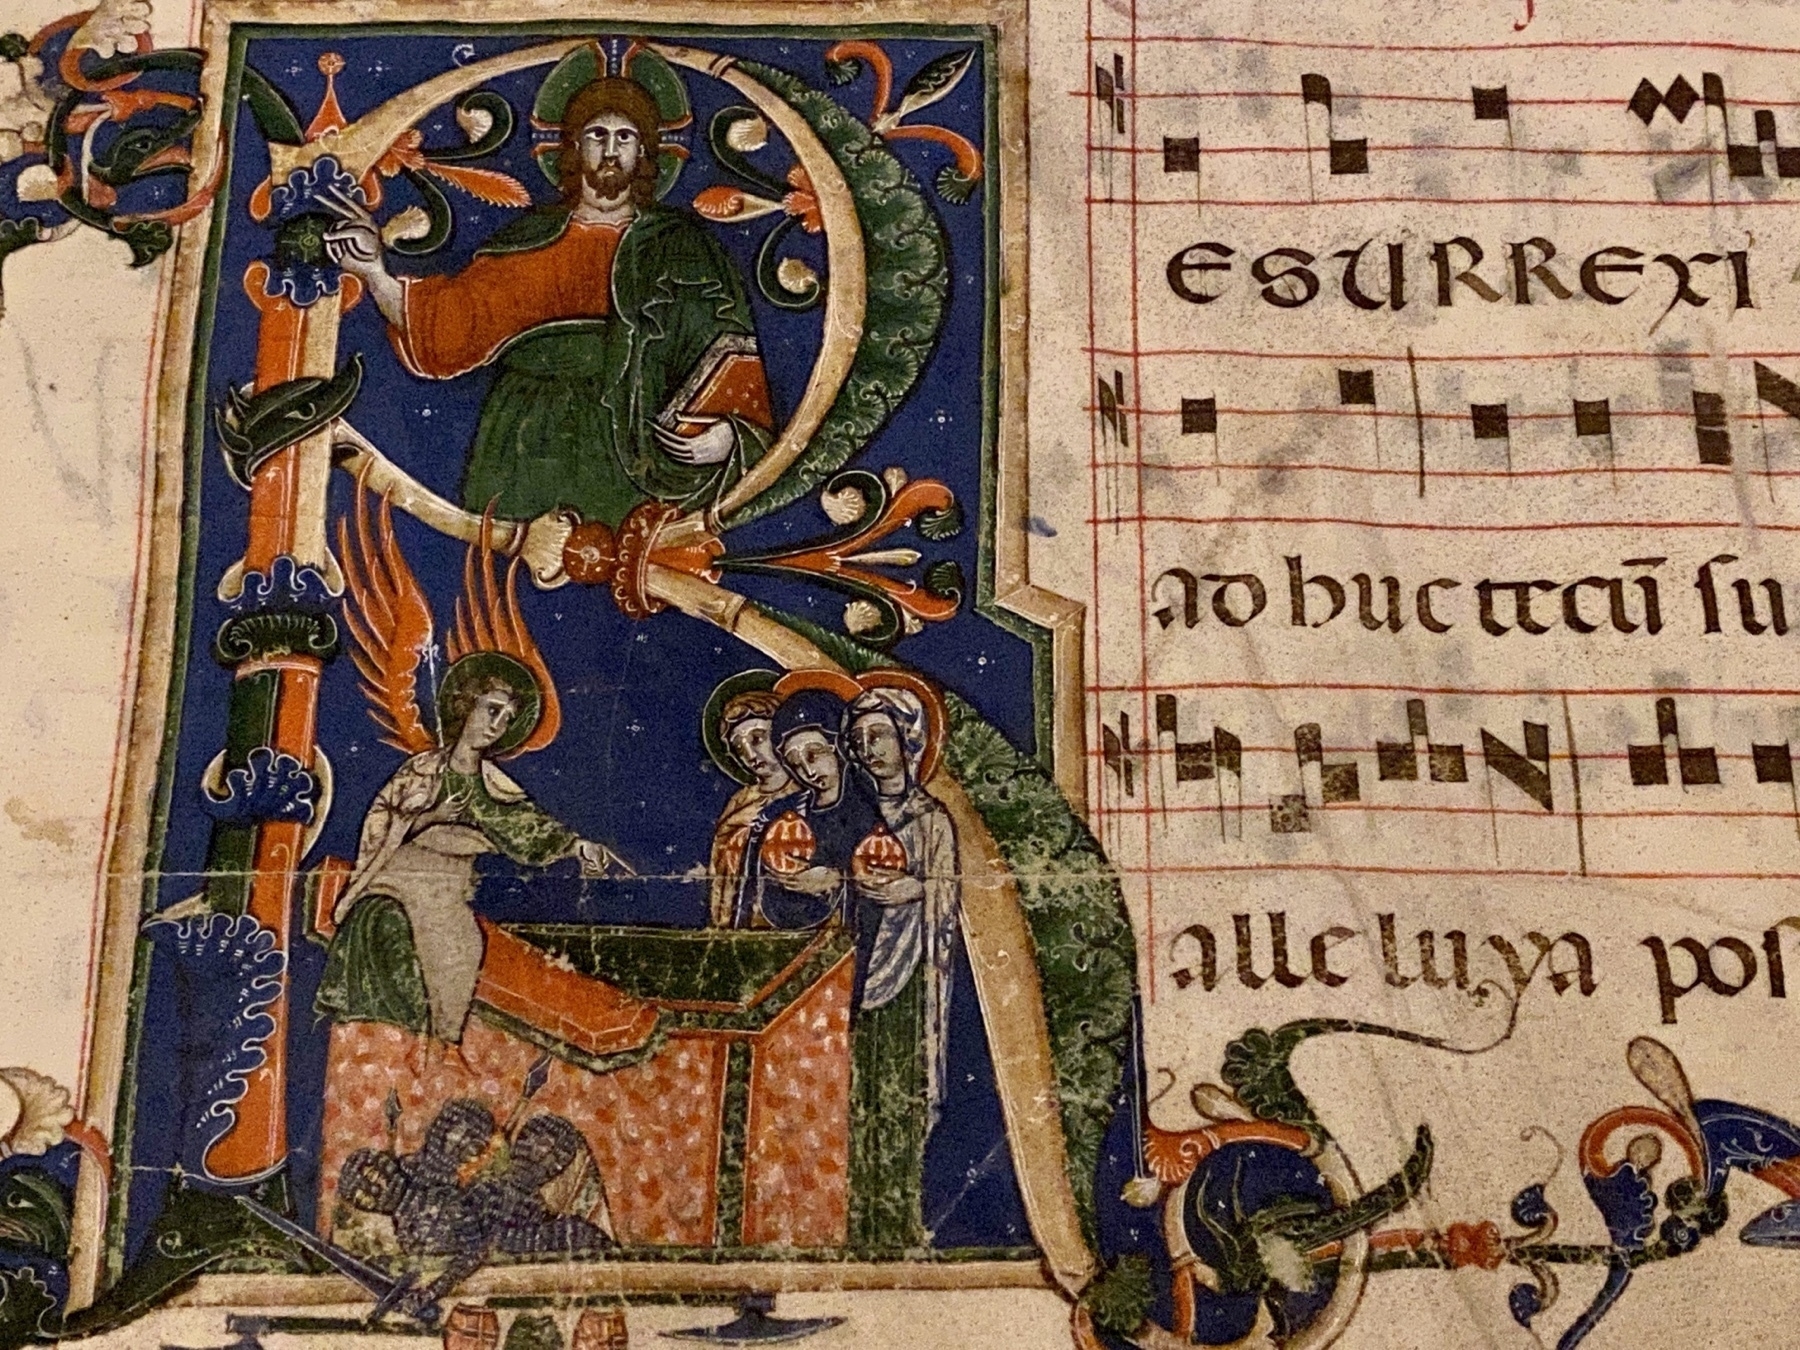 RESURREXI
adhuc tecū ſu
alleluya poſ